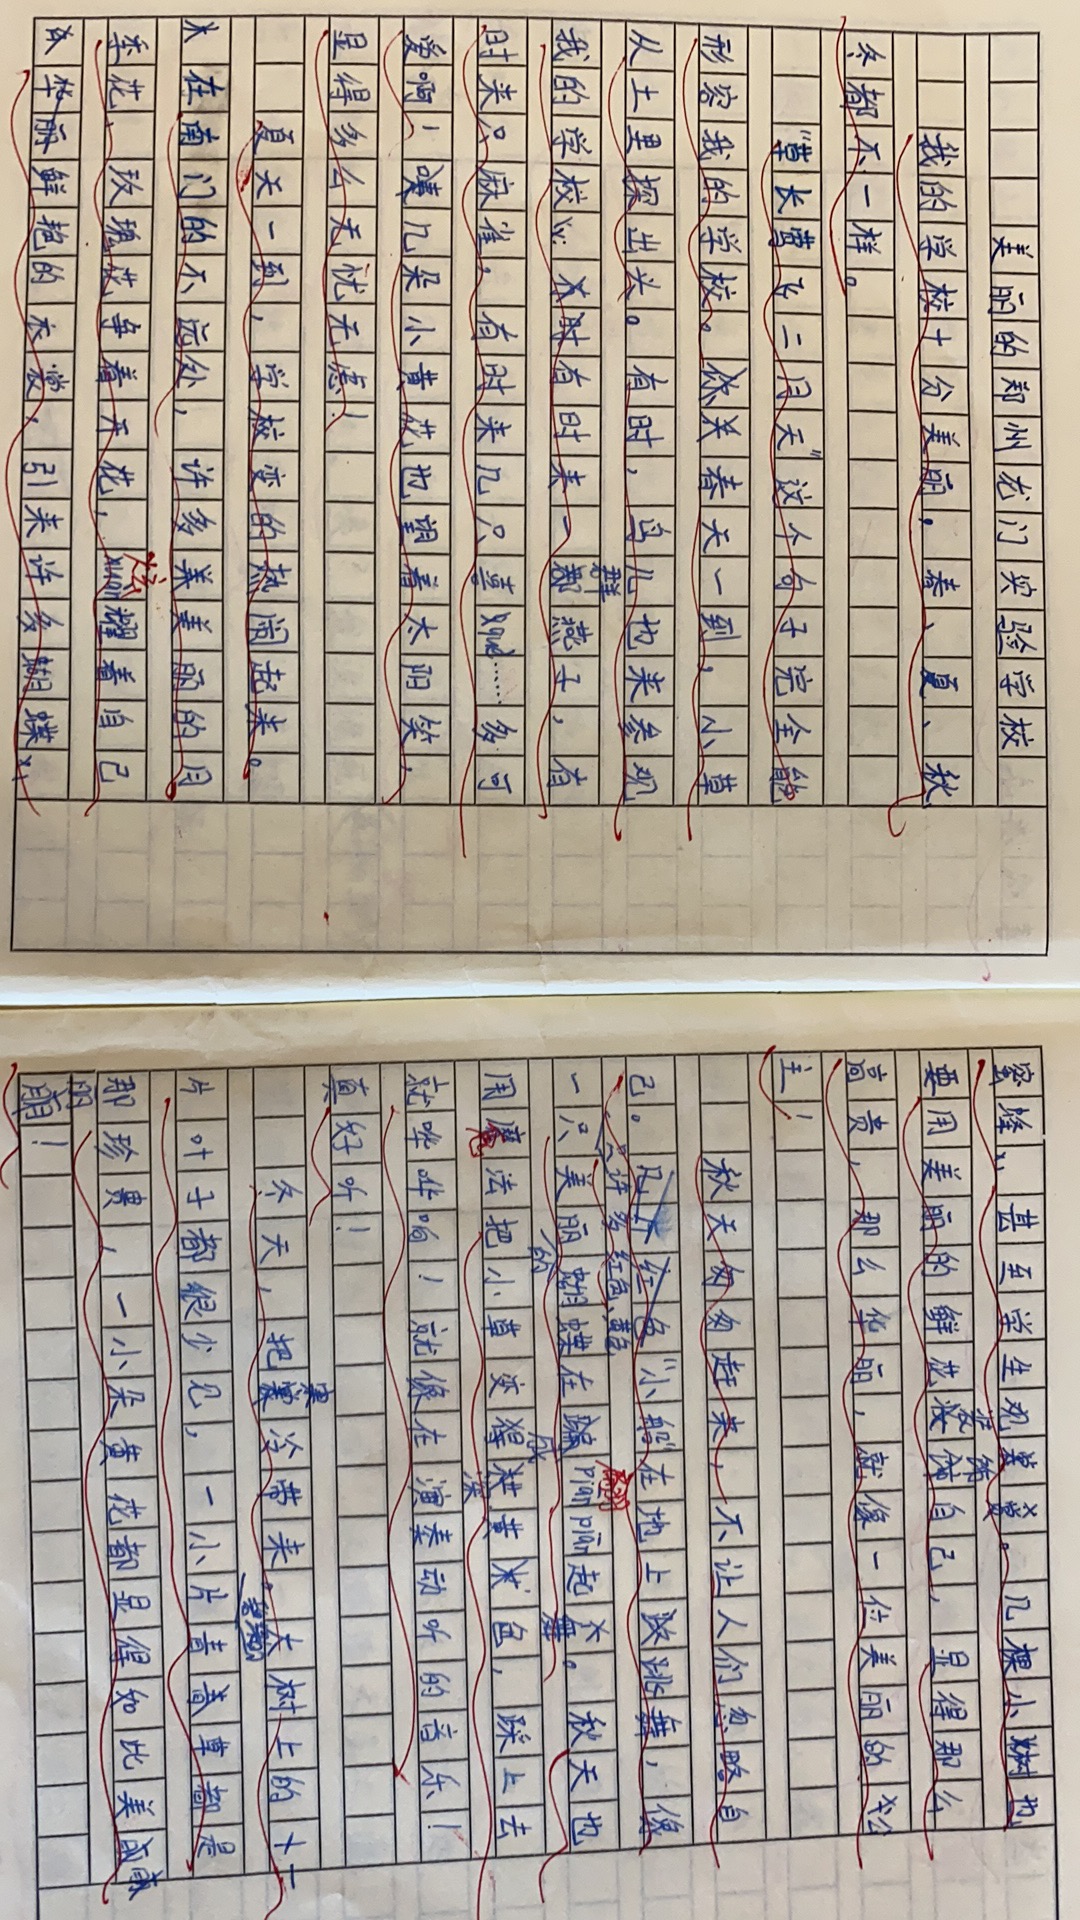 美丽的郑州龙门实验学校
我的学校十分美丽,春、夏、秋、
冬都不一样。
“草长莺飞二月天”这个句子完全能
形容我的学校。你关春天一到,小草
从土里探出头。有时,鸟儿也来参观
我的学校。有时来一群燕子,有
时来只麻雀,有时来几只喜que……多可
爱啊!几朵小黄花也望着太阳笑,
显得多么无忧无虑!
夏天一到,学校变的热闹起来。
在南门的不远处,许多美丽的月
季花、玫瑰花争着开花,xuan炫耀着自己
华丽鲜艳的衣裳,引来许多蝴蝶、
蜜蜂,甚至学生观赏。几棵小树也
要用美丽的鲜花装饰自己,显得那么
高贵,那么华丽,就像一位美丽的公
主!
秋天匆匆赶来,不让人们忽略自
己。只见许多红色、黄色“小船”在地上跳舞,像
一只美丽的蝴蝶在翩pianpian翩起舞。秋天也
用魔法把小草变得成深黄色,踩上去
就哗哗响!就像在演奏动听的音乐!
真好听!
冬天,把寒冷带来。大树上的十一
片叶子都很少见,一小片青青草都是
那珍贵,一小朵黄花都显得如此美丽
!